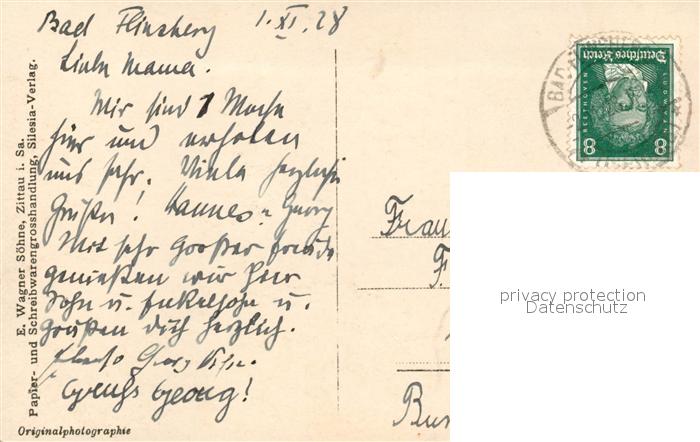 Bad Flinsberg 1. XI. 28
Liebe Mama.
Wir sind 1 Woche
hier und erholen
uns sehr. Viele herzliche
Grüße! Hannes u. Georg
Mit sehr großer Freude
genießen wir hier
Sohn u. Enkelsohn u.
grüßen dich herzlich.
Georg
Georg!
E. Wagner Söhne, Zittau i. Sa.
Papier- und Schreibwarengrosshandlung, Silesia-Verlag.
Originalphotographie
Deutsches Reich
LUDW. VAN
BEETHOVEN
8 8
BAD
Frau
F.
privacy protection
Datenschutz